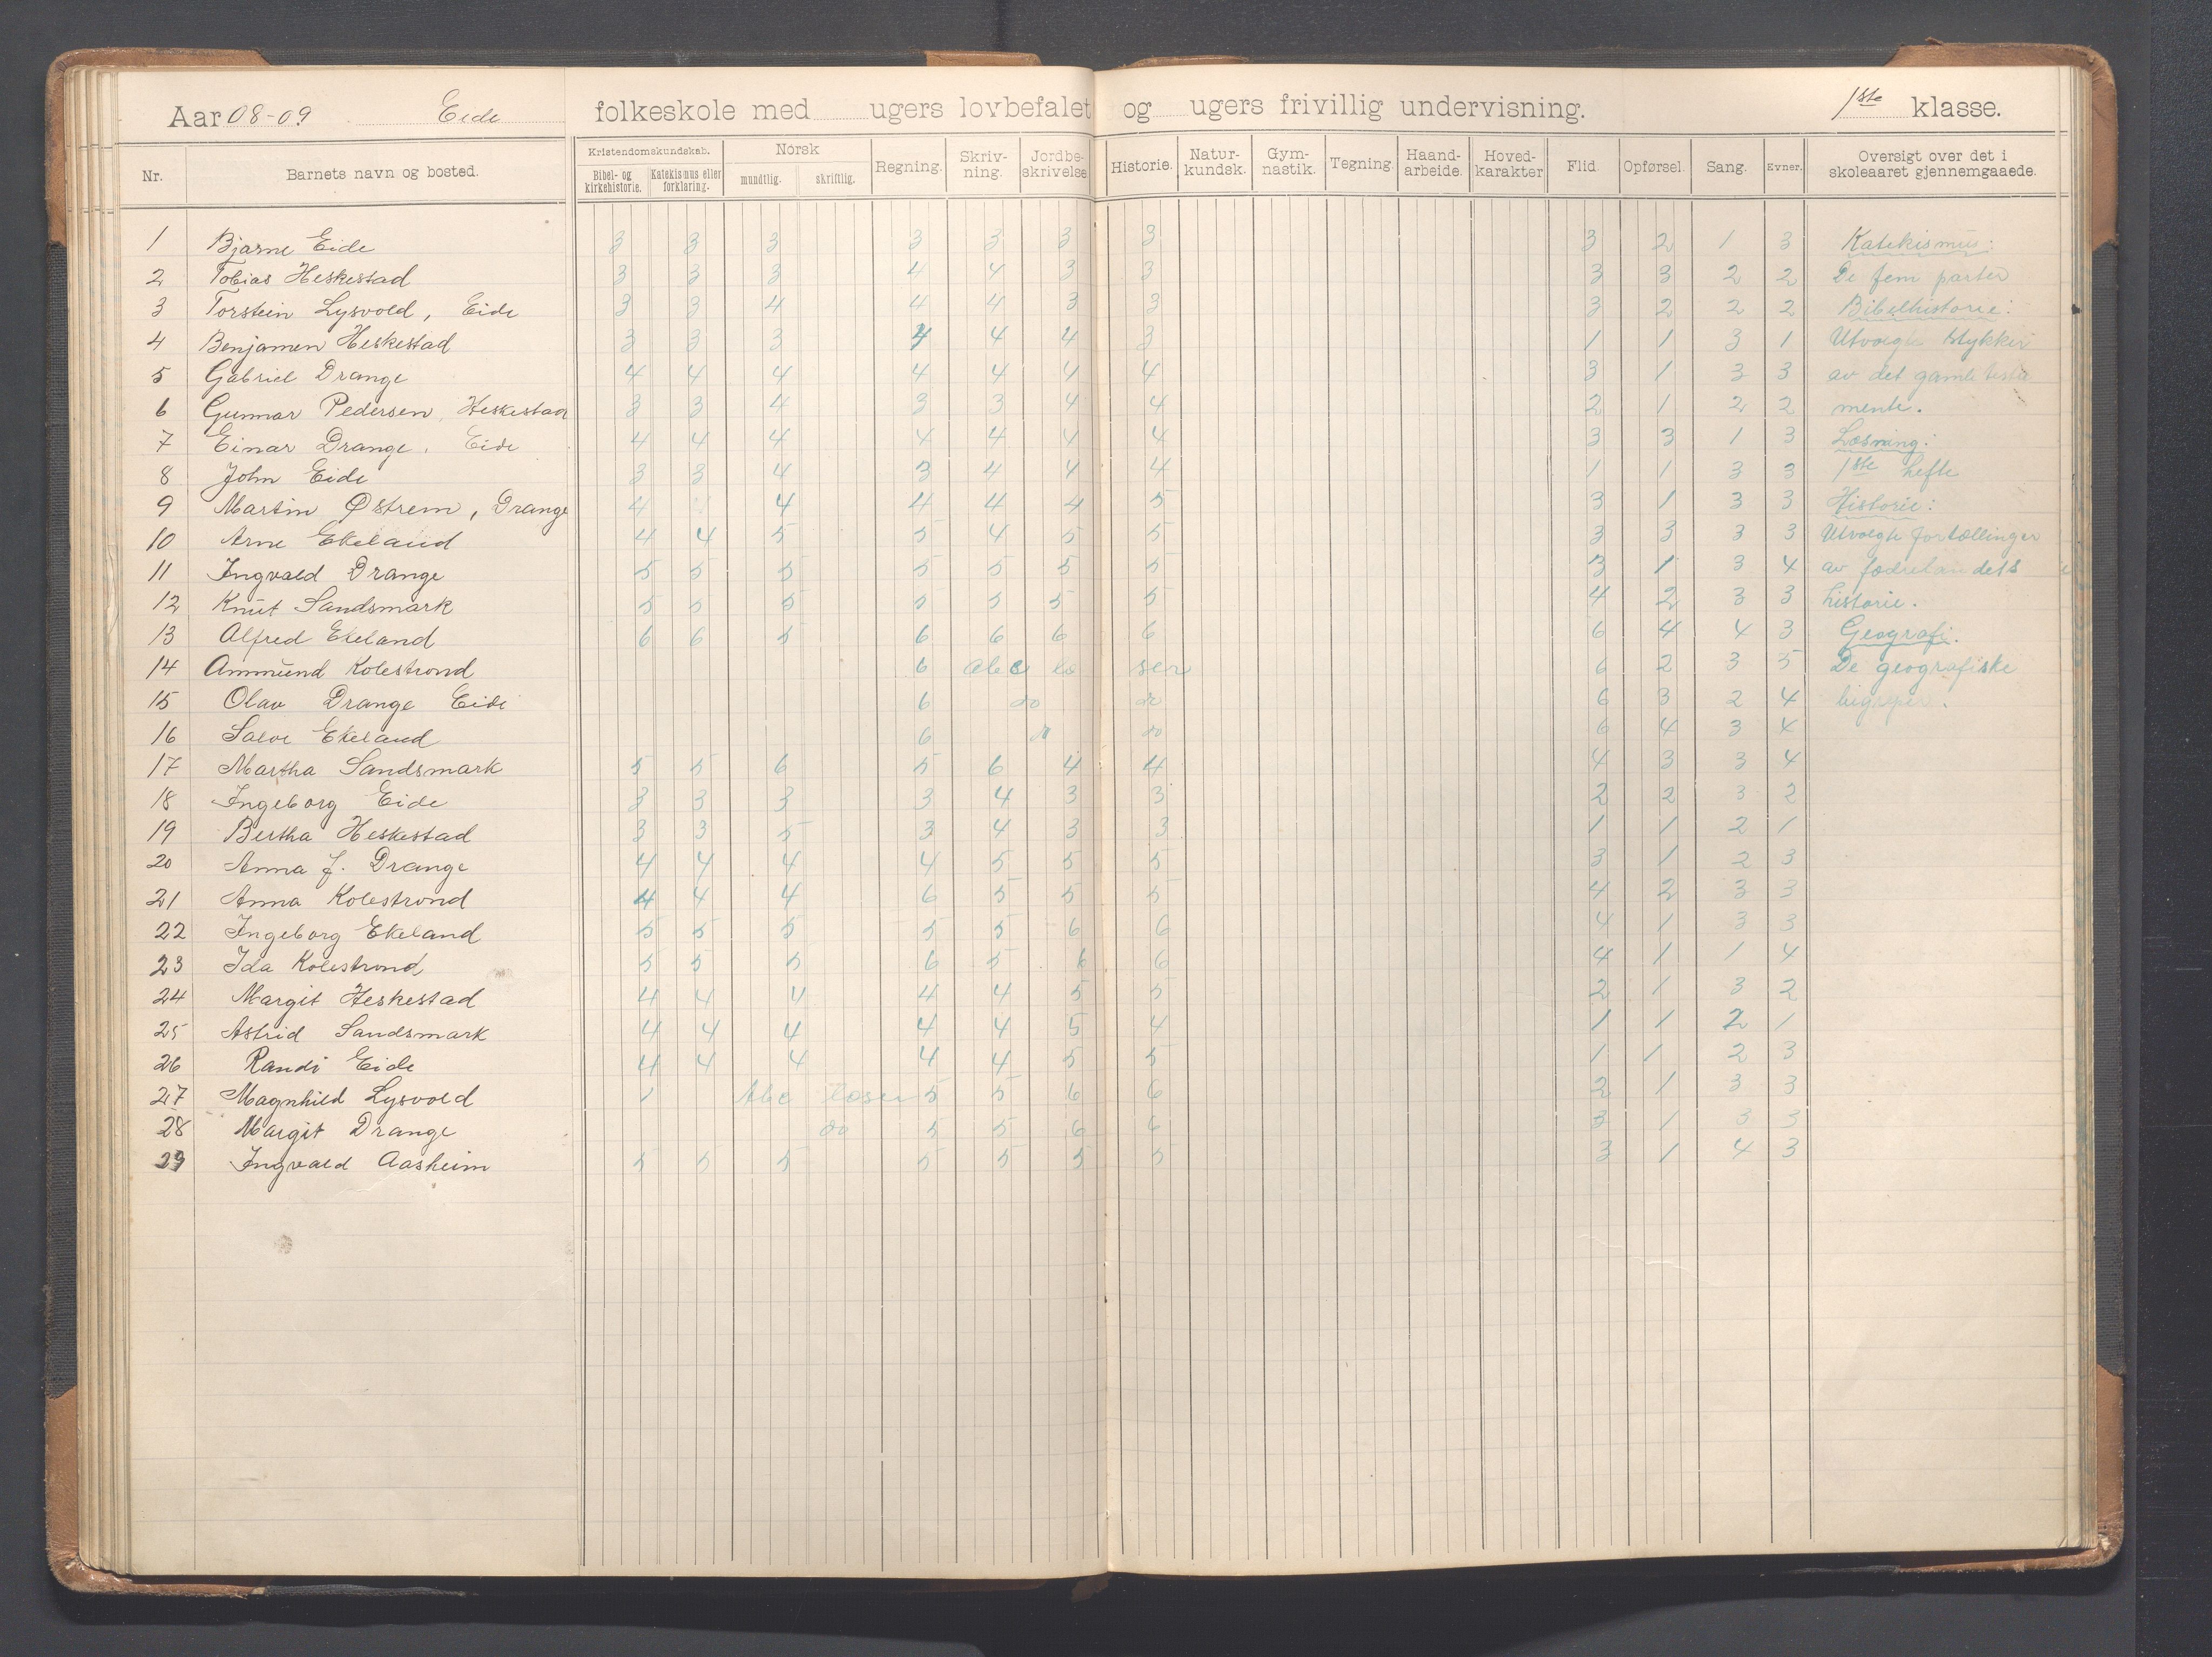 Aar 08-09 Eide folkeskole med ugers lovbefalet og ugers frivillig undervisning. 1ste klasse.
Nr. Barnets navn og bosted. Kristendomskundskab. Bibel- og kirkehistorie. Katekismus eller forklaring. Norsk mundtlig. skriftlig. Regning. Skriv-ning. Jordbe-skrivelse Historie. Natur-kundsk. Gym-nastik. Tegning. Haand-arbeide. Hoved-karakter Flid. Opførsel. Sang. Evner. Oversigt over det i skoleaaret gjennemgaaede.
1 Bjarne Eide 3 3 3 3 3 3 3 3 2 1 3 Katekismus:
2 Tobias Heskestad 3 3 3 4 4 3 3 3 3 2 2 De fem parter
3 Torstein Lysvold, Eide 3 3 4 4 4 3 3 3 2 2 2 Bibelhistorie:
4 Benjamen Heskestad 3 3 3 4 4 4 3 1 1 3 1 Utvalgte stykker
5 Gabriel Drange 4 4 4 4 4 4 4 3 1 3 3 av det gamle testa
6 Gunnar Pedersen, Heskestad 3 3 4 3 3 4 4 2 1 2 2 mente.
7 Einar Drange, Eide 4 4 4 4 4 4 4 3 3 1 3 Læsning:
8 John Eide 3 3 4 3 4 4 4 1 1 3 3 1ste hefte
9 Martin Østrem, Drange 4 4 4 4 4 5 3 1 3 3 Historie:
10 Arne Ekeland 4 4 5 5 4 5 5 3 3 3 3 Utvalgte fortællinger
11 Ingvald Drange 5 5 5 5 5 5 5 3 1 3 4 av fædrelandets
12 Knut Sandsmark 5 5 5 5 5 5 5 4 2 3 3 historie.
13 Alfred Ekeland 6 6 5 6 6 6 6 6 4 4 3 Geografi.
14 Ammund Kolestrond 6 abc læ ser 6 2 3 5 De geografiske
15 Olav Drange Eide 6 do do 6 3 2 4 begreper.
16 Salve Ekeland 6 do do 6 4 3 4
17 Martha Sandsmark 5 5 6 5 6 4 4 4 3 3 4
18 Ingeborg Eide 3 3 3 3 4 3 3 2 2 3 2
19 Bertha Heskestad 3 3 5 3 4 3 3 1 1 2 1
20 Anna J. Drange 4 4 4 4 5 5 5 3 1 2 3
21 Anna Kolestrond 4 4 4 6 5 5 5 4 2 3 3
22 Ingeborg Ekeland 5 5 5 5 5 6 6 4 1 3 3
23 Ida Kolestrond 5 5 5 6 5 6 6 4 1 1 4
24 Margit Heskestad 4 4 4 4 4 5 5 2 1 3 2
25 Astrid Sandsmark 4 4 4 4 4 5 4 1 1 2 1
26 Randi Eide 4 4 4 4 4 5 5 1 1 2 3
27 Magnhild Lysvold 1 Abc læser 5 5 6 6 2 1 3 3
28 Margit Drange do 5 5 6 6 3 1 3 3
29 Ingvald Aasheim 5 5 5 5 5 5 5 3 1 4 3